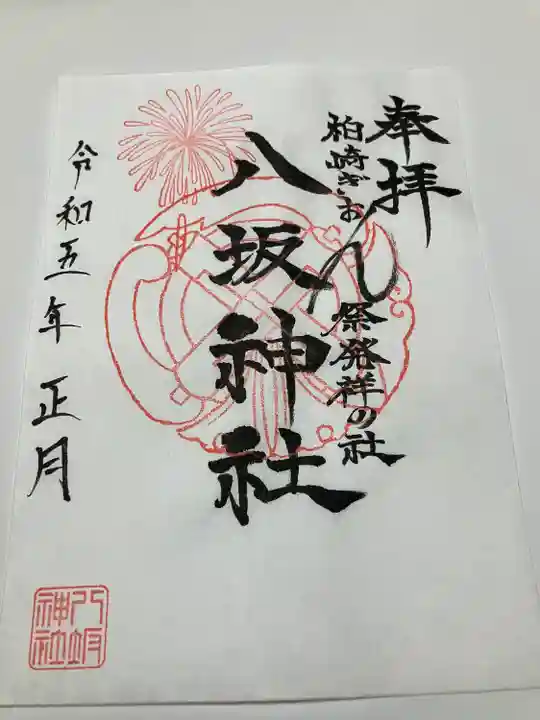 奉拝
柏崎ぎおん祭発祥の社
八坂神社
令和五年正月
八坂
神社